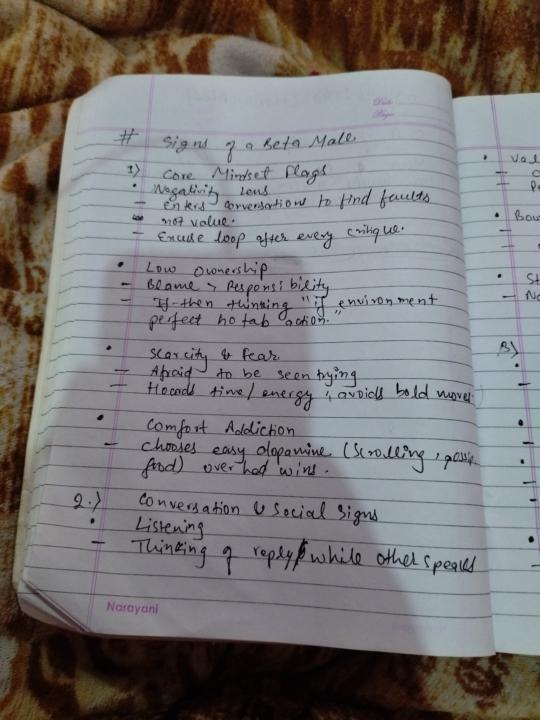 Date
Page
# Signs of a Beta Male
1) Core Mindset Flags
• Negativity Lens
– enters conversations to find faults
not value.
– Excuse loop after every critique.
• Low ownership
– Blame > Responsibility
– If-then thinking "if environment
perfect ho tab action."
• Scarcity & Fear
– Afraid to be seen trying
– Hoards time/energy, avoids bold moves
• Comfort Addiction
– Chooses easy dopamine (scrolling, gossip
food) over hard wins.
2.) Conversation & Social Signs
• Listening
– Thinking of reply while other speaks
Narayani
• Val
–
–
• Bou
–
–
• St
– No
B)